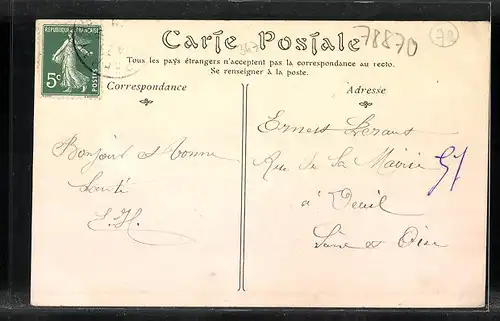 RÉPUBLIQUE FRANÇAISE
5c
POSTES
Carte Postale
367
78870
78
Tous les pays étrangers n'acceptent pas la correspondance au recto.
Se renseigner à la poste.
Correspondance
Adresse
Bonjour & bonne
Santé
E.H.
Ernest
Rue de la Mairie 57
à Deuil
Seine et Oise